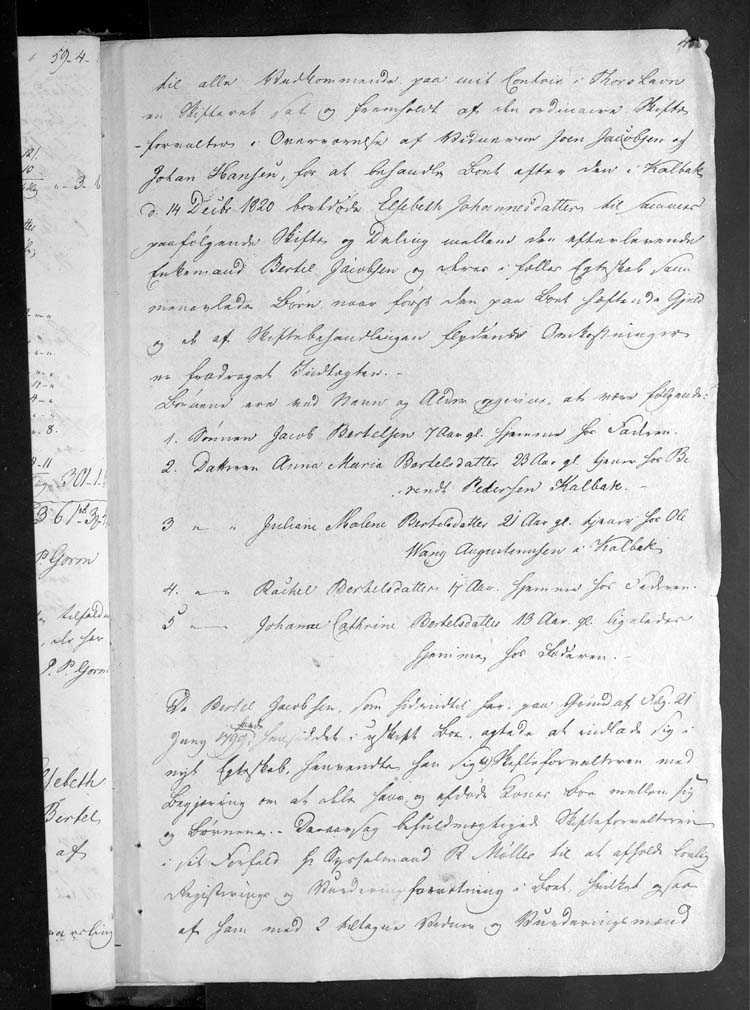 59-4-
til alle Vedkommende paa mit Contoir i Thorshavn
en Skifteret sat og fremholdt af den ordinaire Skifte
-forvalter i Overværelse af Vidnerne Joen Jacobsen og
Johan Hansen, for at behandle Boet efter den i Kalbak
d. 14 Decbr 1820 bortdøde Elsebeth Johannesdatter til sammes
paafølgende Skifte og Deling mellem den efterlevende
Enkemand Bertel Jacobsen og deres i fælles Egteskab sam
menavlede Børn, naar først den paa Boet hæftende Gjeld
og de af Skiftebehandlingen flydende Omkostninger
er fradraget Indtægten. -
Børnene ere ved Navn og Alder opgivne, at være følgende:
1. Sønnen Jacob Bertelsen 7 Aar gl. hjemme hos Faderen.
2. Datteren Anna Maria Bertelsdatter 23 Aar gl. tjener hos Be
rendt Pedersen Kalbak. -
3 " " Juliane Malene Bertelsdatter 21 Aar gl. tjener hos Ole
Wang Augustinussen i Kalbak
4. " " Rachel Bertelsdatter 17 Aar. hjemme hos Faderen.
5 " Johanne Cathrine Bertelsdatter 13 Aar gl. ligeledes
hjemme, hos Faderen. -
Da Bertel Jacobsen, som hidindtil har, paa Grund af 21
Juny hensiddet i uskift Boe, agtede at indlade sig i
nyt Egteskab, henvendte han sig til Skifteforvalteren med
Begjæring om at dele hans og afdøde Kones Boe mellem sig
og Børnene. - Derpaa befuldmægtiged Skifteforvalteren
i sit Forfald Hr Sysselmand R Møller til at afholde lovlig
Registerings og Vurderingsforretning i Boet, hvilket ogsaa
af ham med 2 tiltagne Vidner og Vurderingsmænd
301-1
P. Gorm
tilfalde
P. P. Gorm
Elsebeth
Bertel
af